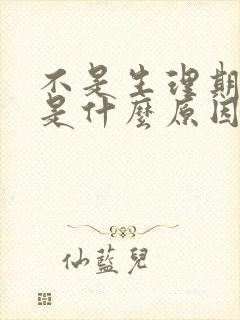 不是生理期
是什麼原因
仙藍兒